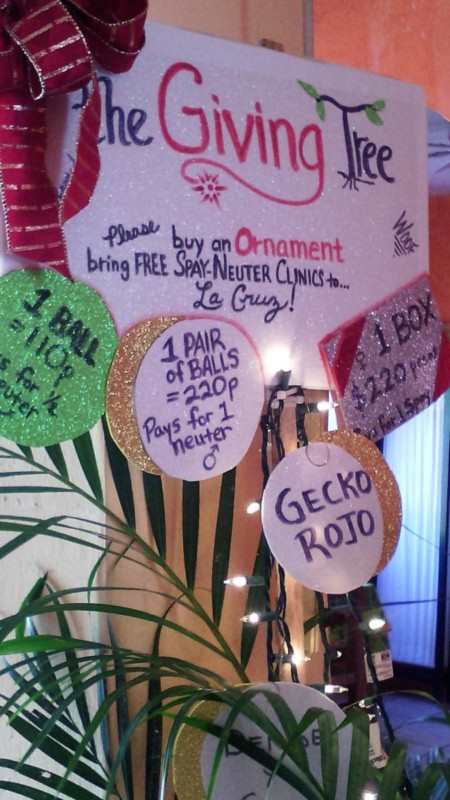 The Giving Tree
Please buy an Ornament
bring FREE SPAY-NEUTER CLINICS to...
La Cruz!
1 BALL
= 110p
for ½
neuter
1 PAIR
of BALLS
= 220p
Pays for 1
neuter
♂
1 BOX
$220 pesos
for 1 Spay
GECKO
ROJO
DENISE